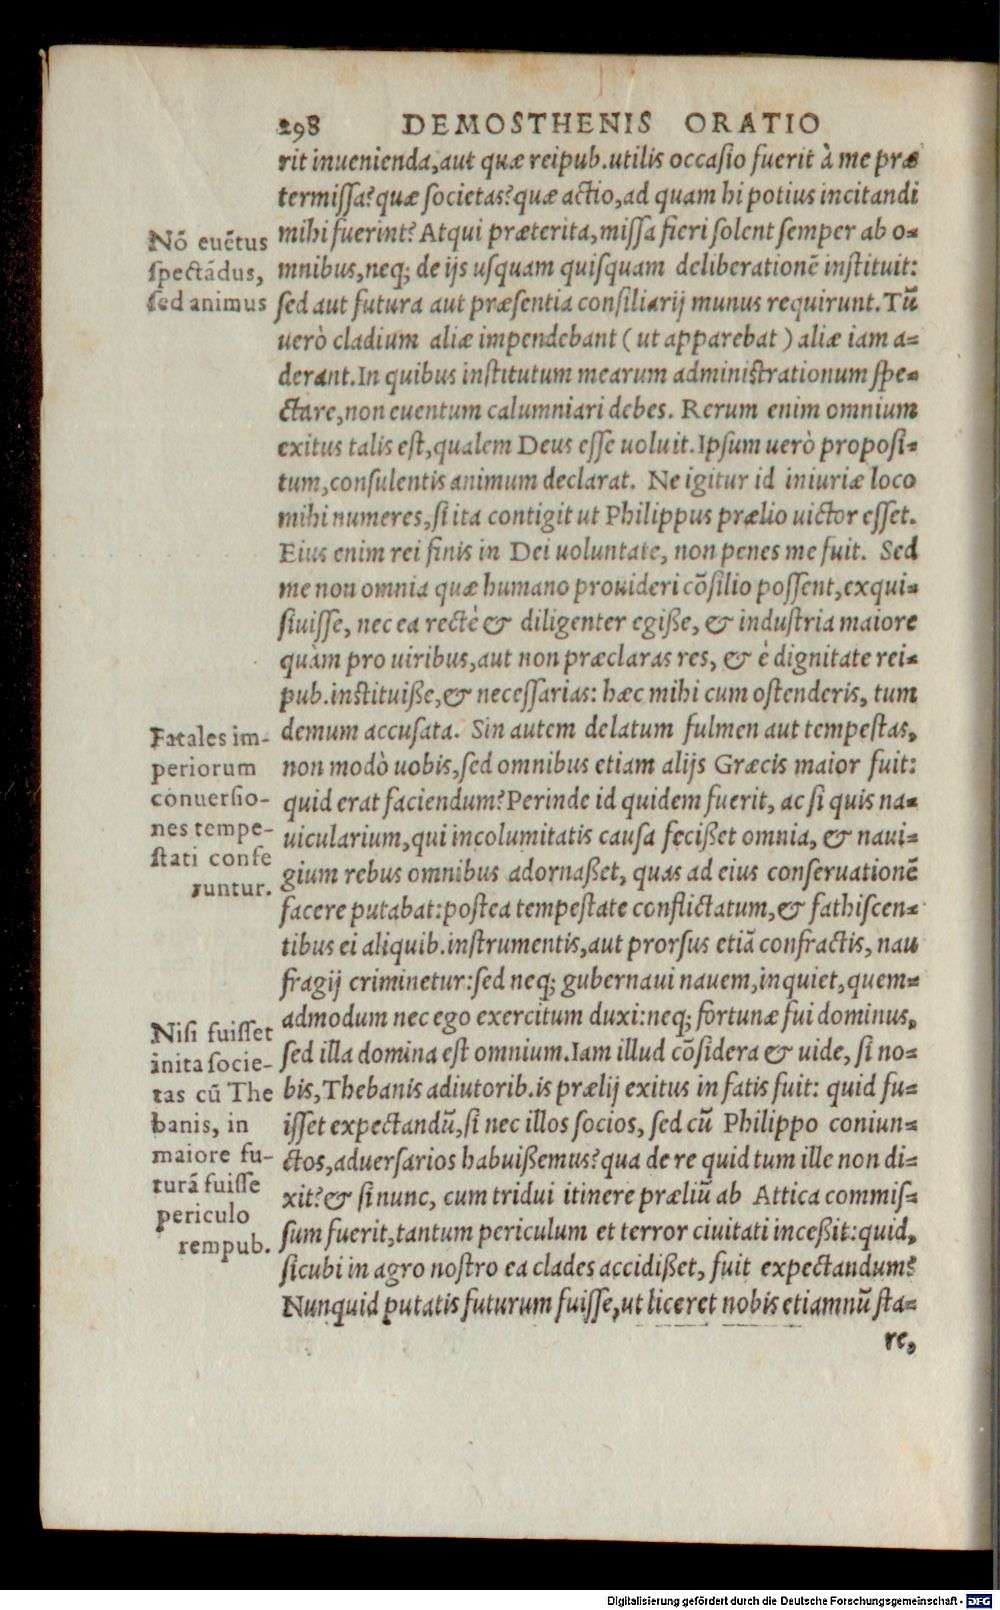 298 DEMOSTHENIS ORATIO
rit inuenienda, aut quæ reipub. utilis occasio fuerit à me præ
termissa? quæ societas? quæ actio, ad quam hi potius incitandi
mihi fuerint? Atqui præterita, missa fieri solent semper ab o-
mnibus, neq; de ijs usquam quisquam deliberationẽ instituit:
sed aut futura aut præsentia consiliarij munus requirunt. Tũ
uerò cladium aliæ impendebant (ut apparebat) aliæ iam a-
derant. In quibus institutum mearum administrationum spe-
ctare, non euentum calumniari debes. Rerum enim omnium
exitus talis est, qualem Deus esse uoluit. Ipsum uerò proposi-
tum, consulentis animum declarat. Ne igitur id iniuriæ loco
mihi numeres, si ita contigit ut Philippus prælio uictor esset.
Eius enim rei finis in Dei uoluntate, non penes me fuit. Sed
me non omnia quæ humano prouideri cõsilio possent, exqui-
siuisse, nec ea rectè & diligenter egiße, & industria maiore
quàm pro uiribus, aut non præclaras res, & è dignitate rei-
pub. instituiße, & necessarias: hæc mihi cum ostenderis, tum
demum accusata. Sin autem delatum fulmen aut tempestas,
non modò uobis, sed omnibus etiam alijs Græcis maior fuit:
quid erat faciendum? Perinde id quidem fuerit, ac si quis na-
uicularium, qui incolumitatis causa fecißet omnia, & naui-
gium rebus omnibus adornaßet, quas ad eius conseruationẽ
facere putabat: postea tempestate conflictatum, & fathiscen-
tibus ei aliquib. instrumentis, aut prorsus etiã confractis, nau
fragij criminetur: sed neq; gubernaui nauem, inquiet, quem-
admodum nec ego exercitum duxi: neq; fortunæ fui dominus,
sed illa domina est omnium. Iam illud cõsidera & uide, si no-
bis, Thebanis adiutorib. is prælij exitus in fatis fuit: quid fu-
isset expectandũ, si nec illos socios, sed cũ Philippo coniun-
ctos, aduersarios habuißemus? qua de re quid tum ille non di-
xit? & si nunc, cum tridui itinere præliũ ab Attica commis-
sum fuerit, tantum periculum et terror ciuitati inceßit: quid,
sicubi in agro nostro ea clades accidißet, fuit expectandum?
Nunquid putatis futurum fuisse, ut liceret nobis etiamnũ sta-
re,
Nõ euẽtus
spectãdus,
sed animus
Fatales im-
periorum
conuersio-
nes tempe-
stati confe
runtur.
Nisi fuisset
inita socie-
tas cũ The
banis, in
maiore fu-
turã fuisse
periculo
rempub.
Digitalisierung gefördert durch die Deutsche Forschungsgemeinschaft - DFG